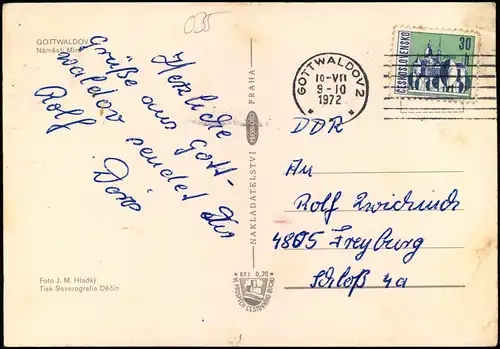 GOTTWALDOV
Náměstí Míru
035
Herzliche
Grüße aus Gott-
waldov sendet Dir
Rolf
Foto J. M. Hladký
Tisk Severografia Děčín
NAKLADATELSTVÍ
PRAHA
Kčs 0,20
GOTTWALDOV 2
10-VII
9-10
1972
ČESKOSLOVENSKO
30
h
DDR
An
Rolf
4805 Freyburg
Schloß 4a